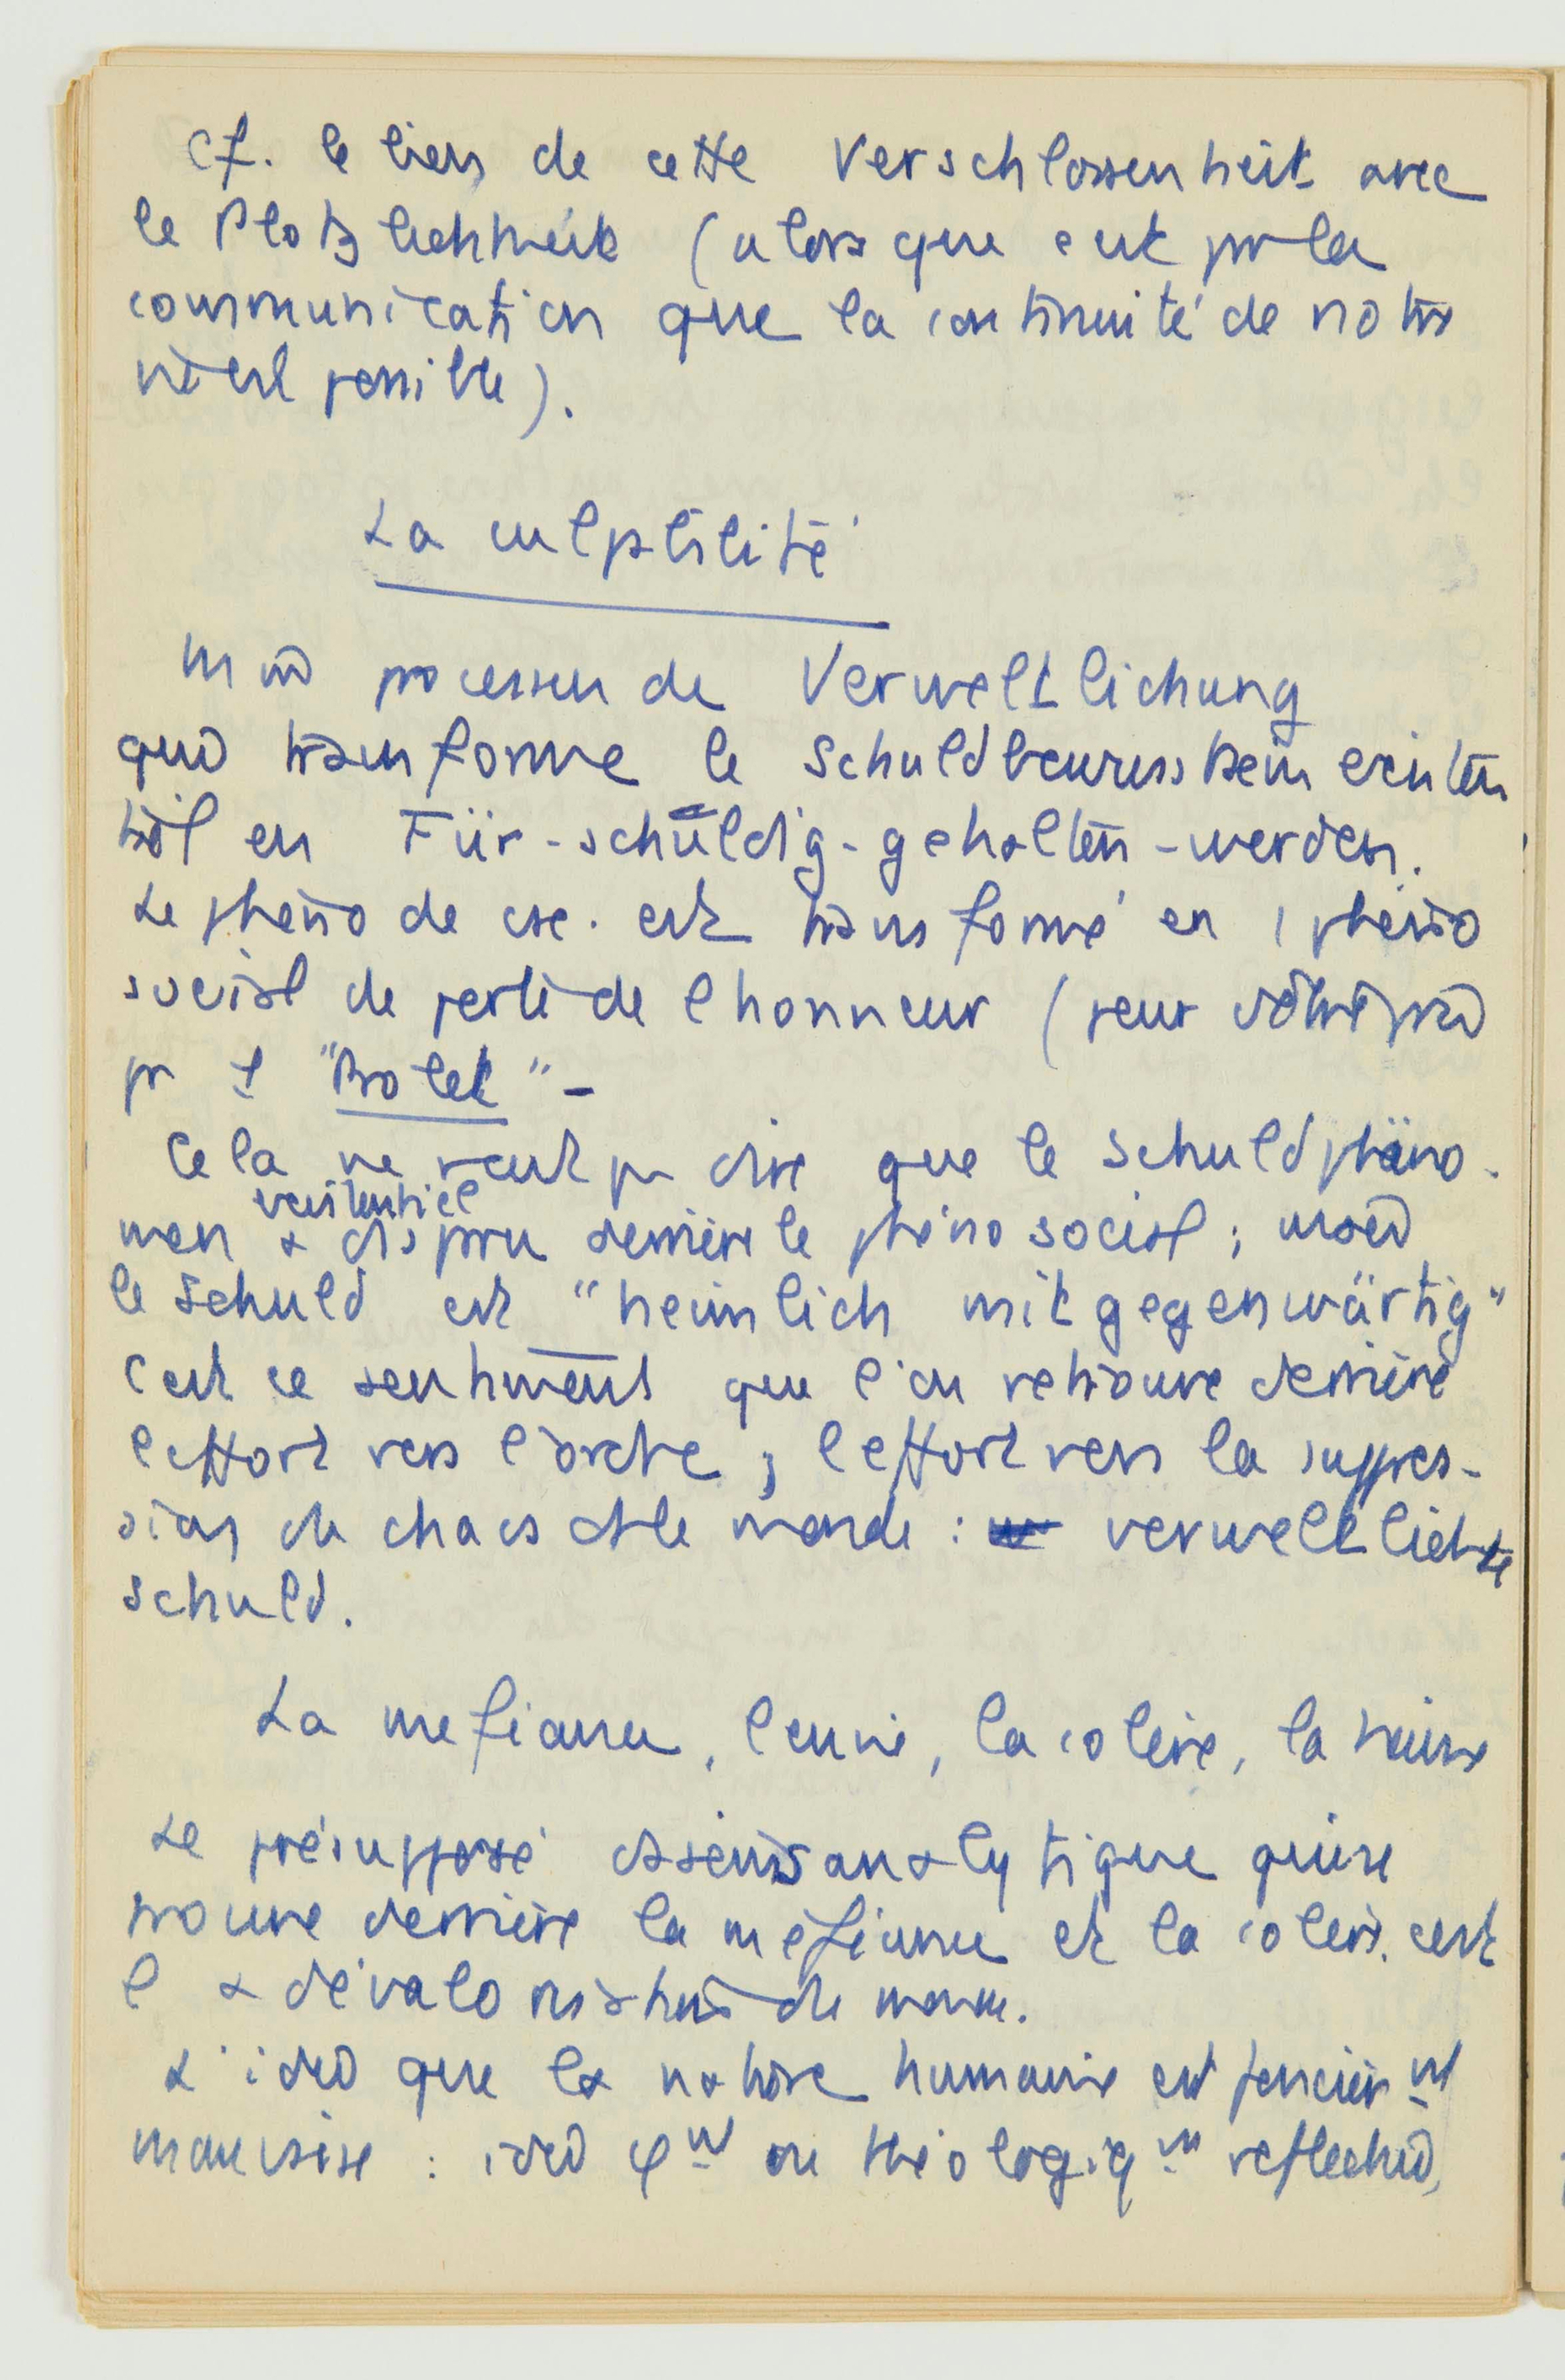 cf. le lien de cette Verschlossenheit avec
le Plotzlichkeit (alors que c'est par la
communication que la continuité de notre
vie est possible).
La culpabilité
un processus de Verweltlichung
qui transforme le Schuldbewusstsein existen
tiel en Für-schuldig-gehalten-werden.
Le phéno de csc. est transformé en 1 phéno
social de perte de l honneur (peur d'être pris
pr 1
Cela ne veut pas dire que le Schuldphäno-
men existentiel a disparu derrière le phéno social ; mais
le Schuld est "heimlich mitgegenwärtig"
c'est ce sentiment que l'on retrouve derrière
l'effort vers l'ordre ; l'effort vers la suppres-
sion du chaos ds le monde : verweltlichte
Schuld.
La mefiance, l'envie, la colère, la haine
Le présupposé dsseinsanalytique qui se
trouve derrière la méfiance et la colère. c'est
l a dévalorisation du monde.
L'idée que la nature humaine est foncièrmt
mauvaise : idée φmt ou théologiqmt reflechie,